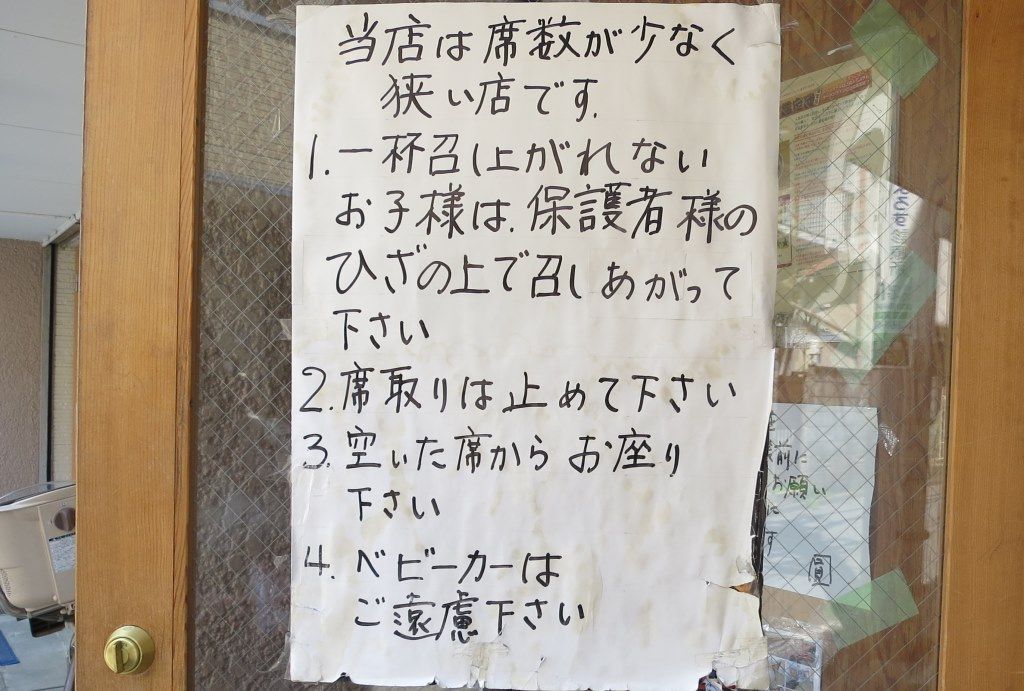 当店は席数が少なく
狭い店です.
1. 一杯召し上がれない
お子様は.保護者様の
ひざの上で召しあがって
下さい
2. 席取りは止めて下さい
3. 空いた席からお座り
下さい
4. ベビーカーは
ご遠慮下さい
前に
お願い